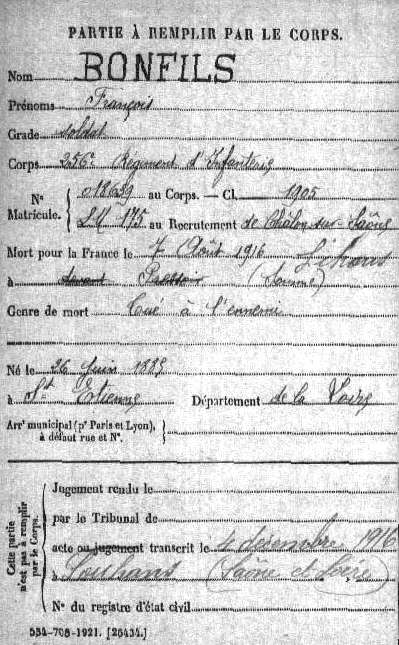 PARTIE À REMPLIR PAR LE CORPS.
Nom BONFILS
Prénoms François
Grade soldat
Corps 256e Régiment d'Infanterie
Nº Matricule. 018639 au Corps. — Cl. 1905
LM 175 au Recrutement de Châlon-sur-Saône
Mort pour la France le 7 Août 1916 Lihons
à devant Pressoir (Somme)
Genre de mort Tué à l'ennemi
Né le 26 Juin 1885
à St Etienne Département de la Loire
Arrt municipal (pr Paris et Lyon),
à défaut rue et Nº.
Cette partie n'est pas à remplir par le Corps.
Jugement rendu le
par le Tribunal de
acte ou jugement transcrit le 4 décembre 1916
à Louhans (Saône et Loire)
Nº du registre d'état civil
534-708-1921. [26434.]